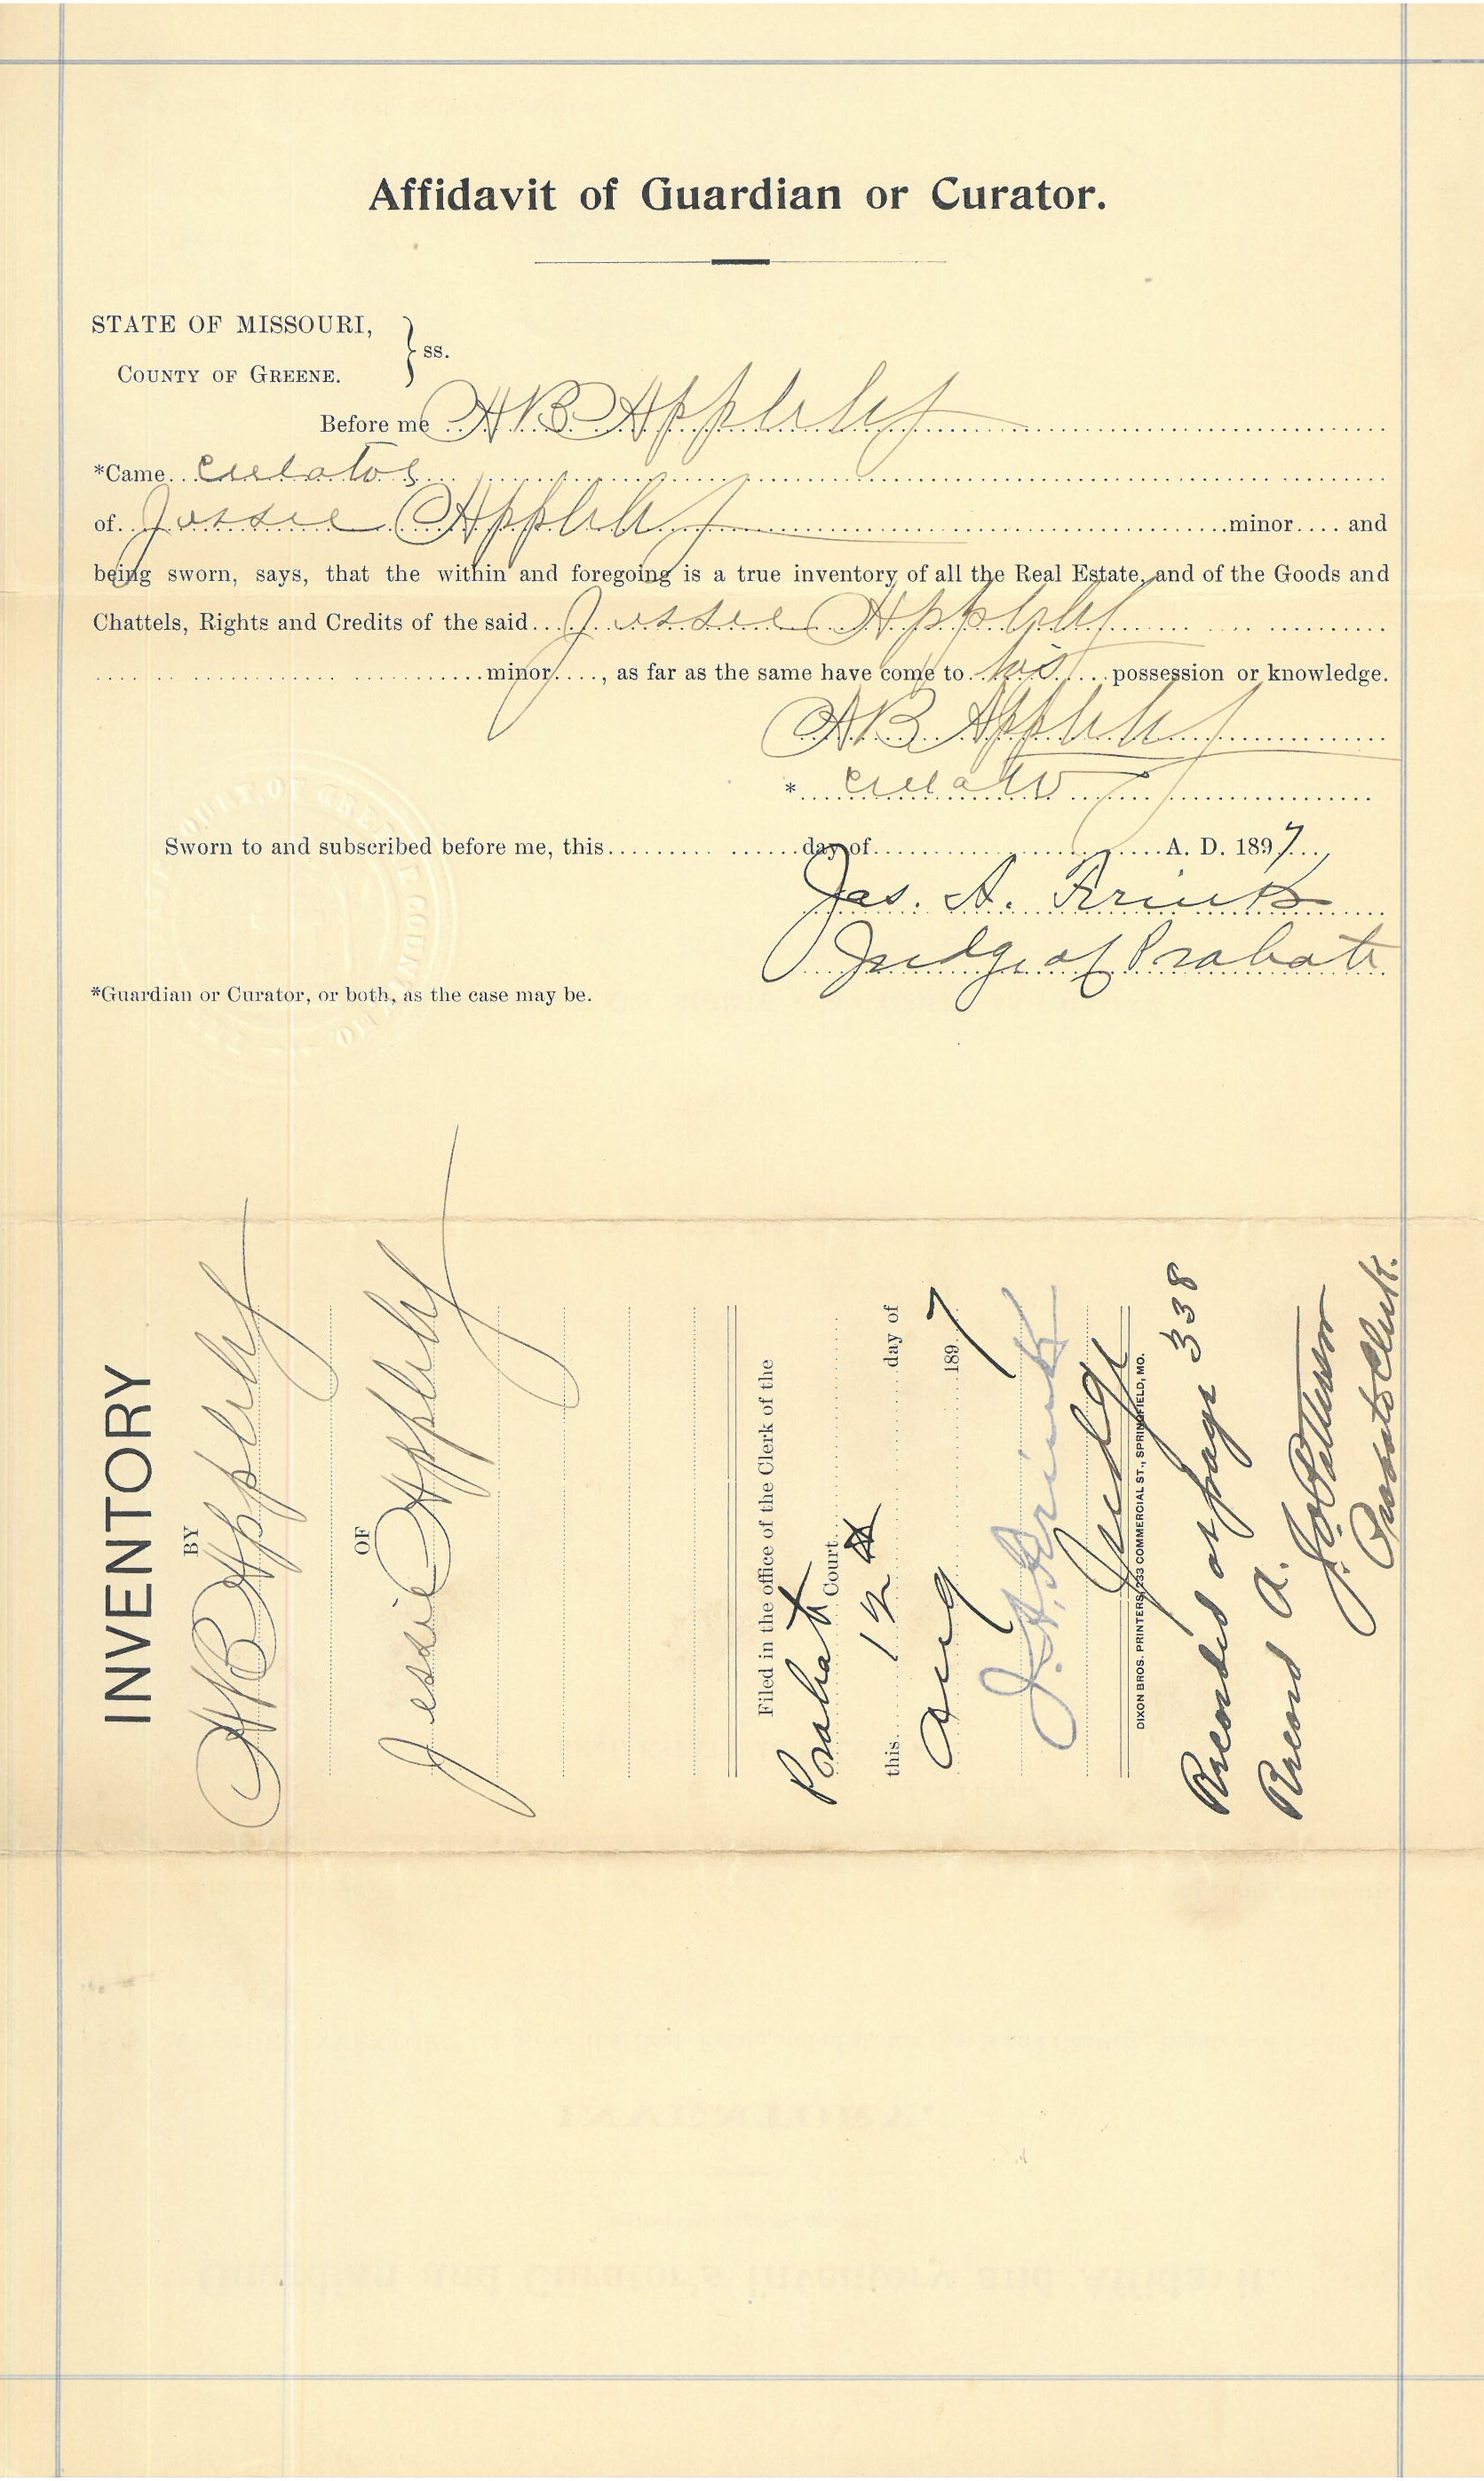 Affidavit of Guardian or Curator.
STATE OF MISSOURI,
COUNTY OF GREENE. } ss.
Before me A B Appleby
*Came curator
of Jessie Appleby minor and
being sworn, says, that the within and foregoing is a true inventory of all the Real Estate, and of the Goods and
Chattels, Rights and Credits of the said Jessie Appleby
minor, as far as the same have come to his possession or knowledge.
A B Appleby
* curator
Sworn to and subscribed before me, this day of A. D. 1897
Jas. A. Frink
Judge of Probate
*Guardian or Curator, or both, as the case may be.
INVENTORY
BY
A B Appleby
OF
Jessie Appleby
Filed in the office of the Clerk of the
Probate Court
this 12 day of
Aug 1897
J. A. Frink
Judge
DIXON BROS. PRINTERS, 233 COMMERCIAL ST., SPRINGFIELD, MO.
Recorded at page 338
Record A.
Probate Clerk.